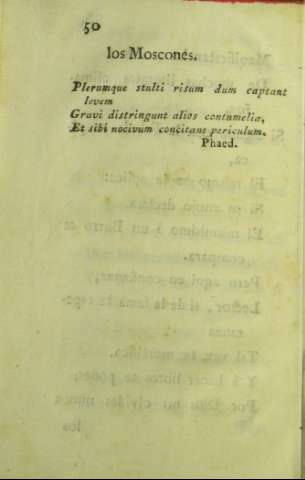 50
los Moscones.
Plerumque stulti risum dum captant
levem
Gravi distringunt alios contumelia,
Et sibi nocivum concitant periculum.
Phaed.